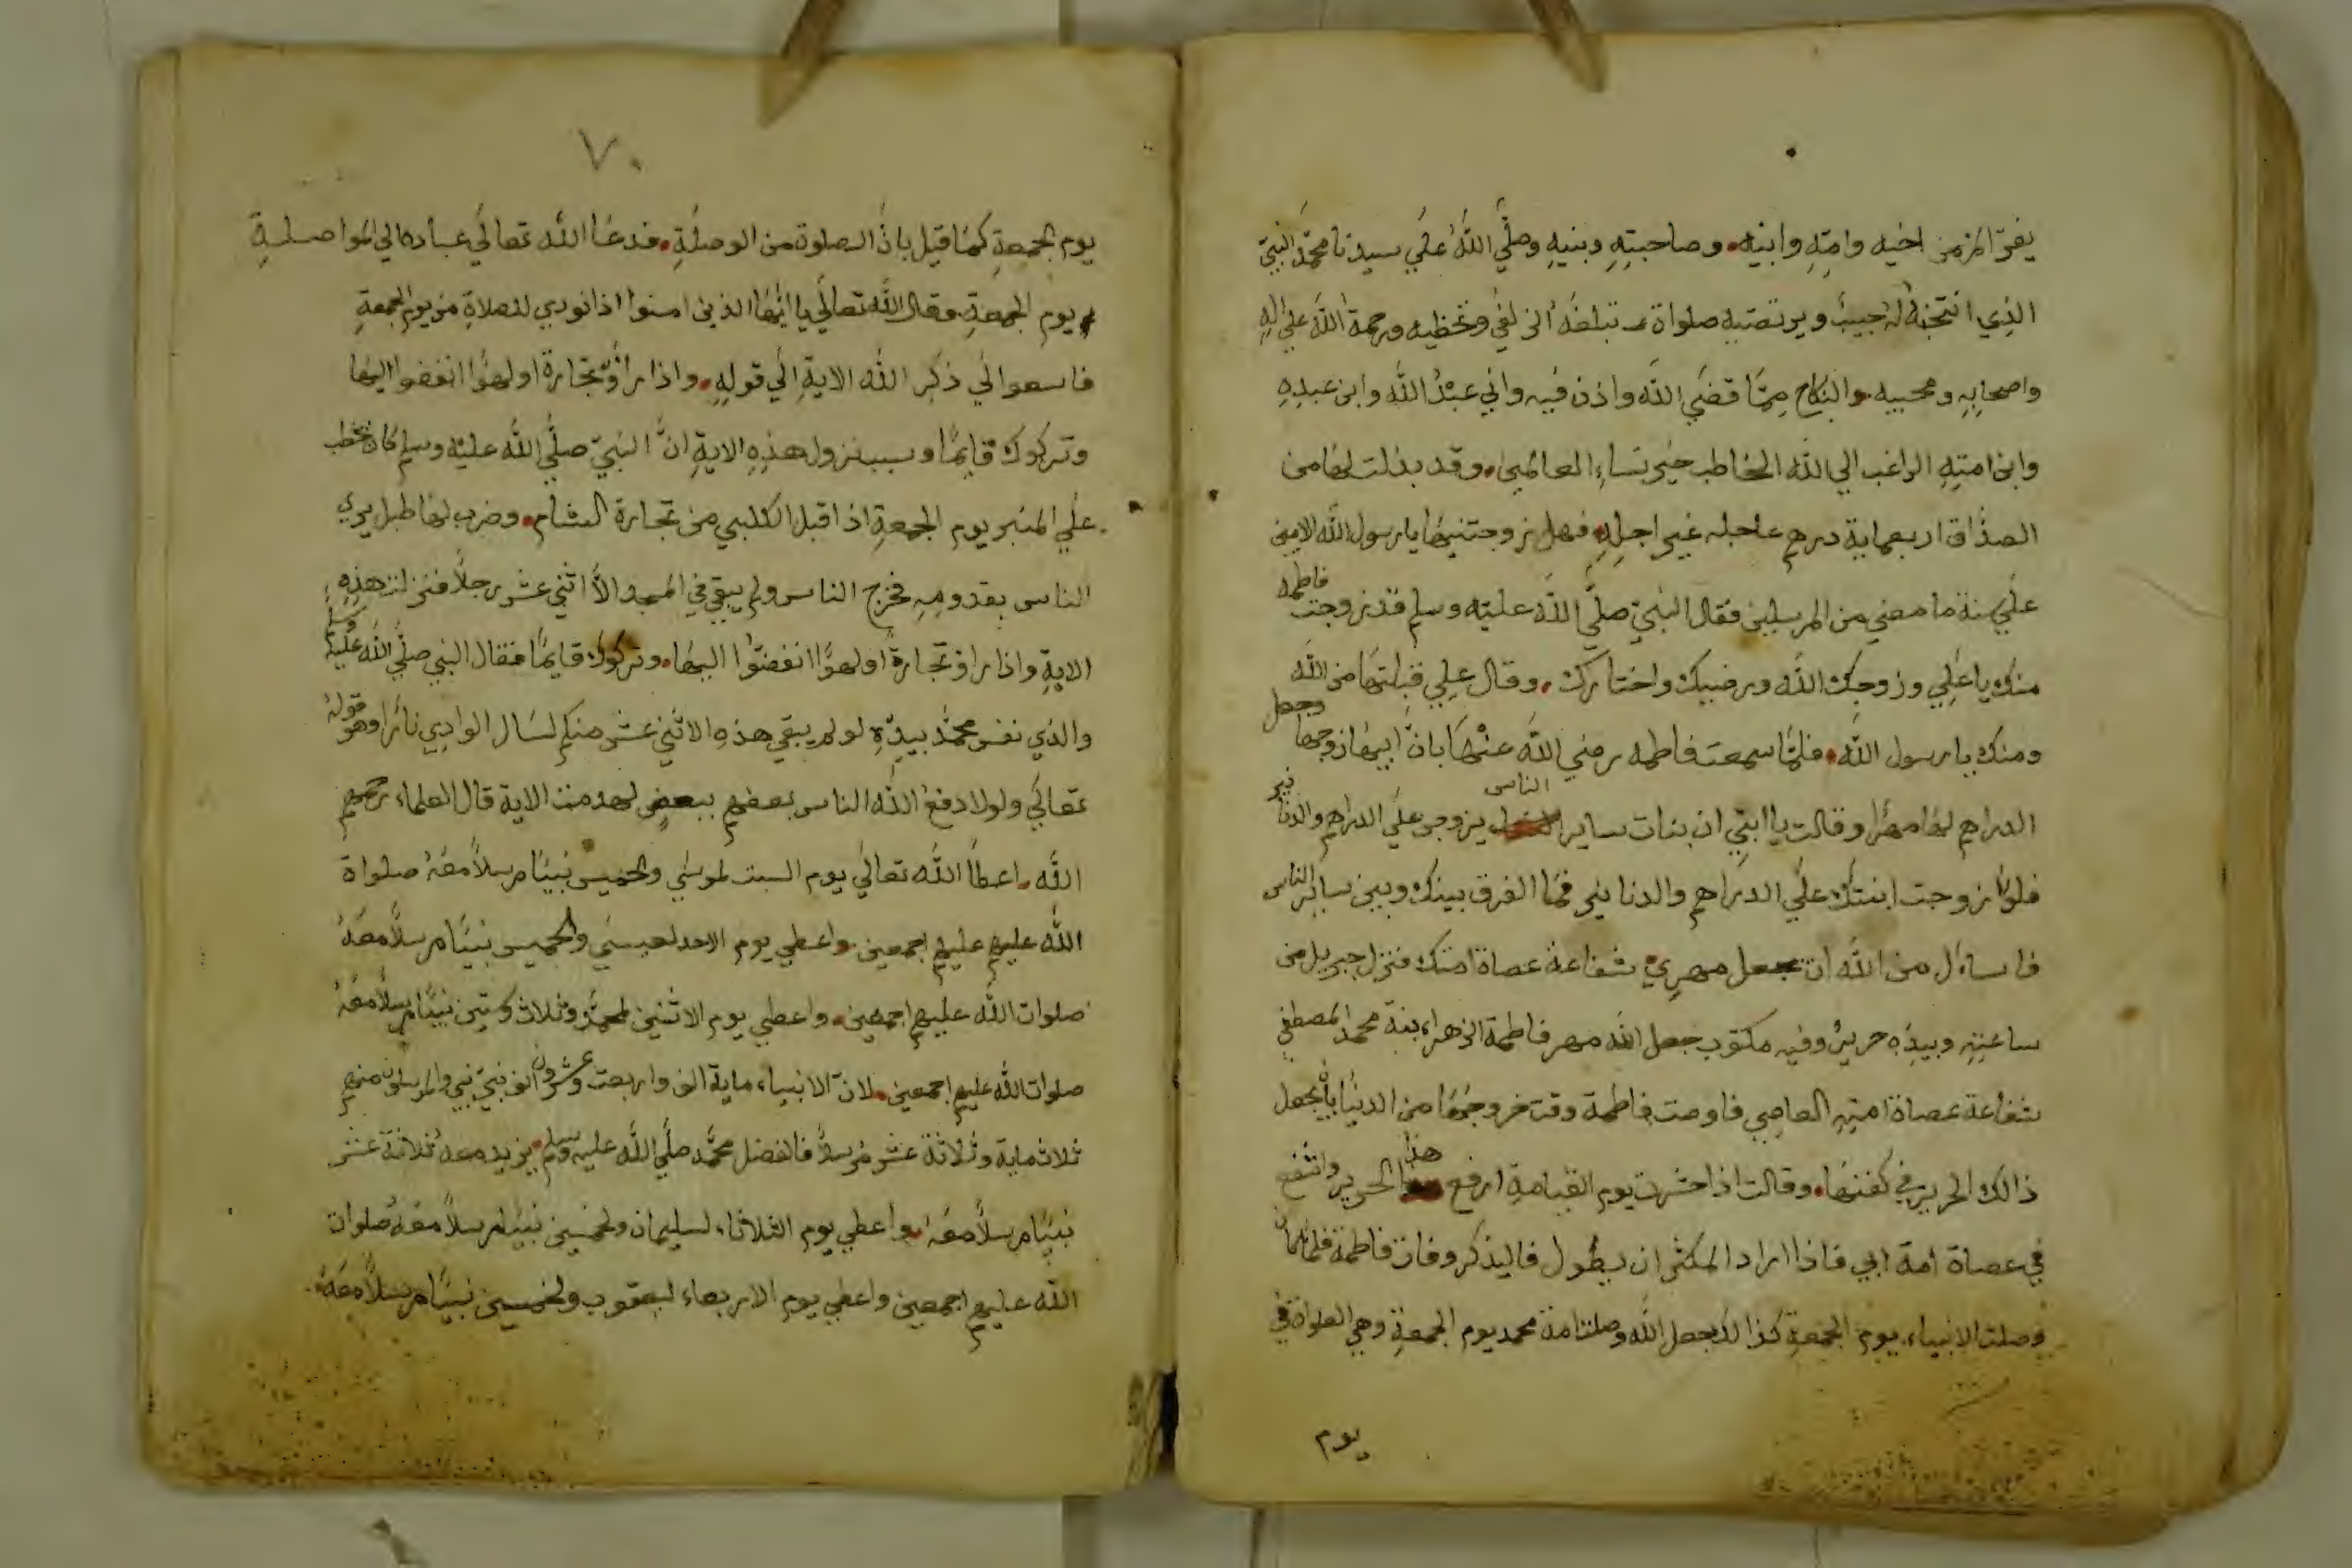 يفرّ المرء من اخيه وامّه وابيه. وصاحبته وبنيه وصلّي اللّه علي سيدنا محمّد النبيّ
الذي انتجبه له حبيب ويرتضيه صلواة تبلغه الزلفي وتحظيه ورحمة اللّه علي اله
واصحابه ومحبيه. والنكاح ممّا قضي اللّه واذن فيه واني عبد اللّه وابن عبده
وابن امته الراغب الي اللّه الخاطب خير نساء العالمين. وقد بذلت لها من
الصداق اربعماية درهم عاجله غير اجله. فهل زوجتنيها يا رسول اللّه الامين
علي سنة ما مضي من المرسلين فقال النبيّ صلّي اللّه عليه وسلم قد زوجت فاطمه
منك يا علي وزوجك اللّه ورضيك واختارك. وقال علي قبلتها من اللّه
ومنك يا رسول اللّه. فلمّا سمعت فاطمه رضي اللّه عنها بانّ ابيها زوجها وجعل
الدراهم لها مهرا وقالت يا ابتي ان بنات ساير الناس يزوجو علي الدراهم والدنانير
فلو زوجت ابنتك علي الدراهم والدنانير فما الفرق بينك وبين ساير الناس
فاساءل من اللّه ان تجعل مهري شفاعة عصاة امتك فنزل جبريل من
ساعته وبيده حرير وفيه مكتوب جعل اللّه مهر فاطمة الزهراء بنة محمد المصطفي
شفاعة عصاة امته العاصي فاوصت فاطمة وقت خروجها من الدنيا بان يجعل
ذالك الحرير في كفنها. وقالت اذا حشرت يوم القيامة ارفع هذا الحرير واشفع
في عصاة امة ابي فاذا اراد المكثر ان يطول فاليذكر وفات فاطمة
وصلت الانبياء يوم الجمعة كذالك جعل اللّه وصلت امة محمد يوم الجمعة وهي الصلواة في
يوم
٧٠
يوم الجمعة كما قيل بانّ الصلوة من الوصلة. فدعا اللّه تعالي عباده الي المواصلة
يوم الجمعة. وقال اللّه تعالي يا ايّها الذين امنوا اذا نودي للصلاة من يوم الجمعة
فاسعوا الي ذكر اللّه الاية الي قوله. واذا راوْ تجارة او لهوًا انفضوا اليها
وتركوك قايمًا وسبب نزول هذه الاية انّ النبيّ صلّي اللّه عليه وسلم كان يخطب
علي المنبر يوم الجمعة اذ اقبل الكلبي من تجارة الشام. وضرب لها طبل يري
الناس بقدومه فخرج الناس ولم يبقي في المسجد الّا اثني عشر رجلًا فنزلت هذه
الاية واذا راوْ تجارة او لهوًا انفضّوا اليها. وتركوك قايمًا فقال النبي صلّي اللّه عليه وسلم
والذي نفس محمّد بيده لو لم يبقي هذه الاثني عشر منكم لسال الوادي نارًا وهو قوله
تعالي ولولا دفع اللّه الناس بعضهم ببعض لهدمت الاية قال العلماء رحمهم
اللّه. اعطا اللّه تعالي يوم السبت لموسي ولخمسين نبيًا مرسلًا معه صلواة
اللّه عليهم عليهم اجمعين. واعطي يوم الاحد لعيسي ولخمسين نبيًا مرسلًا معه
صلوات اللّه عليهم اجمعين. واعطي يوم الاثنين لمحمّد وثلاث وستين نبيًا مرسلًا معه
صلوات اللّه عليهم اجمعين. لانّ الانبياء ماية الف واربعت وعشرون الف نبيّ نبي والمرسلون منهم
ثلاثماية وثلاثة عشر مرسلًا فالفضل محمّد صلّي اللّه عليه وسلم. يزيد معه ثلاثة عشر
نبيًا مرسلًا معه. واعطي يوم الثلاثاء لسليمان ولخمسين نبيًا مرسلًا معه صلوات
اللّه عليهم اجمعين واعطي يوم الاربعاء ليعقوب ولخمسين نبيًا مرسلًا معه.